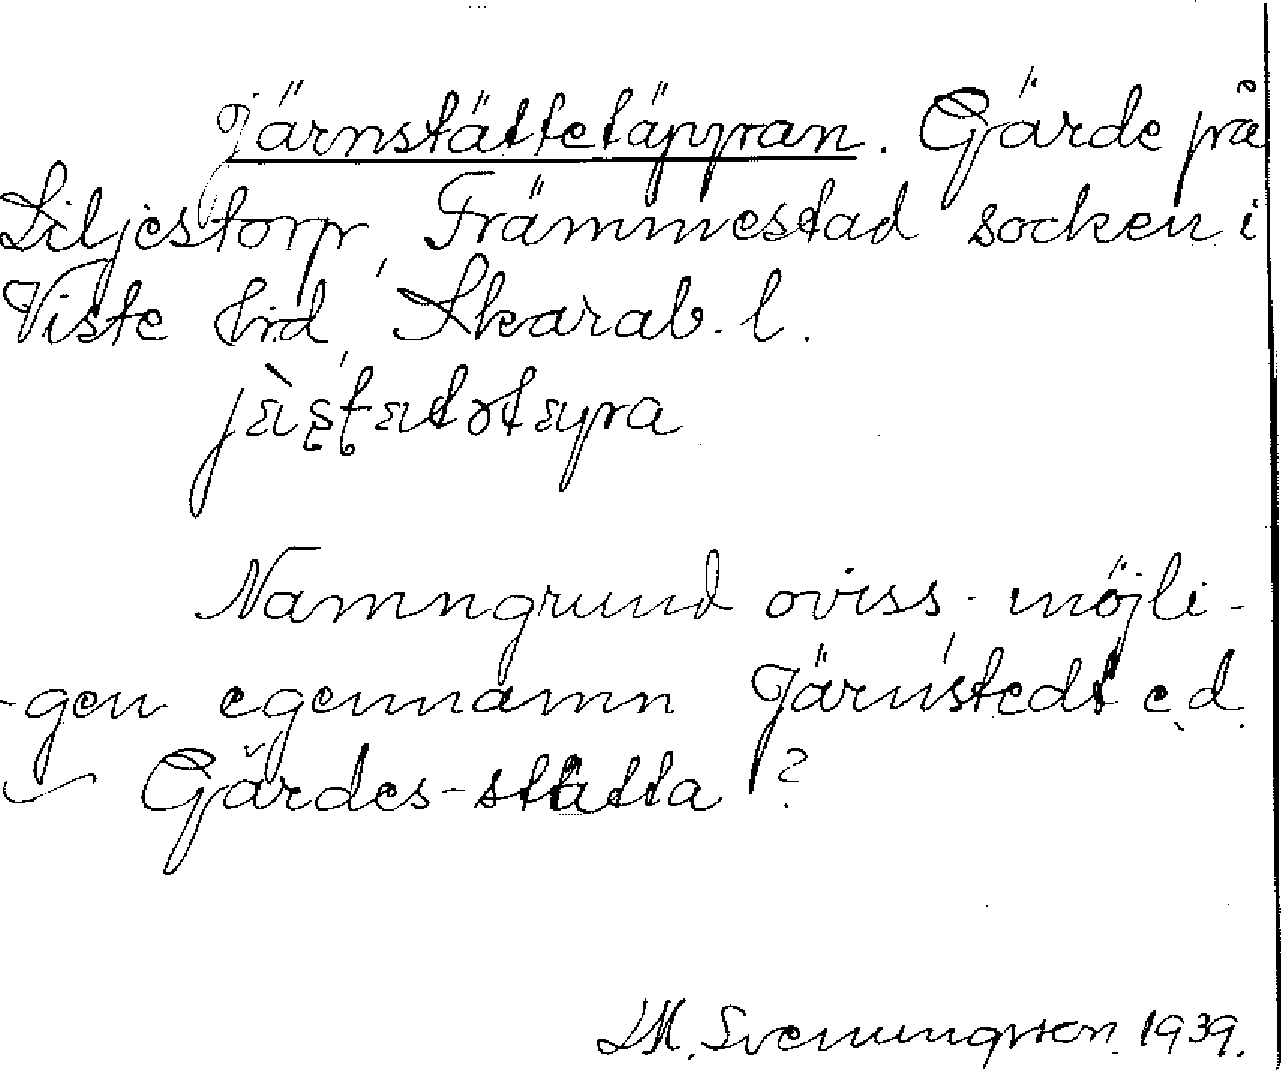 Järnstättetäppan. Gärde på
Liljestorp, Främmestad socken i
Viste hd, Skarab. l.
Namngrund oviss, möjli-
-gen egennamn Järnstedt e.d.
Gärdes-stätta?
LM. Svenungsson. 1939.